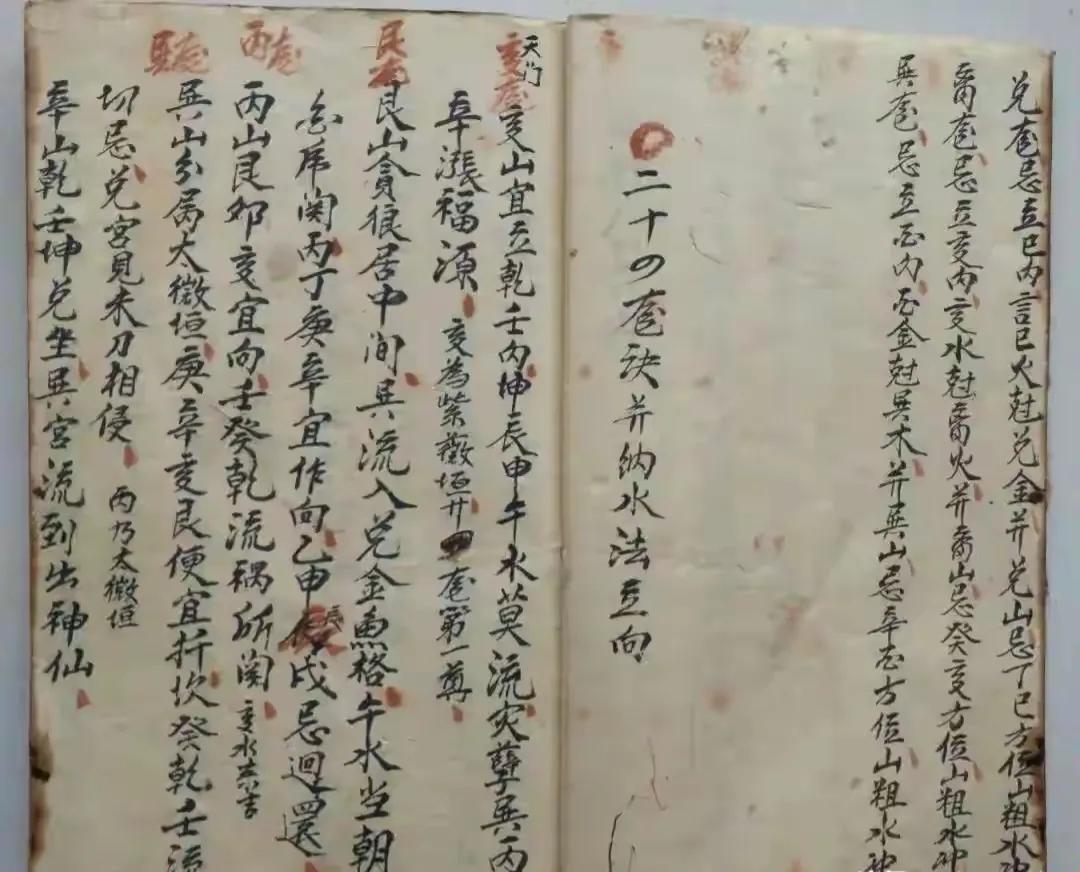 兌竜忌立巳内言巳火尅兌金并兌山忌丁巳方位山粗水冲
离竜忌立亥内亥水尅离火并离山忌癸亥方位山粗水冲
巽竜忌立酉内酉金尅巽木并巽山忌辛酉方位山粗水冲
二十四竜訣并纳水法立向
天门
亥竜
亥山宜立乾壬丙坤辰申午水莫流灾孽巽丙
辛漲福湏 亥為紫微垣廿四竜第一尊
艮竜
艮山貪狼居中间巽流入兌金魚格午水当朝
白虎関丙丁庚辛宜作向乙申辰戌忌迴還
丙竜
丙山艮卯亥宜向壬癸乾流禍所関 亥水来吉
巽竜
巽山分属太微垣庚辛亥艮便宜扦坎癸乾壬流
切忌兌宮見未刀相侵 丙乃太微垣
辛山乾壬坤兌坐巽宮流到出神仙